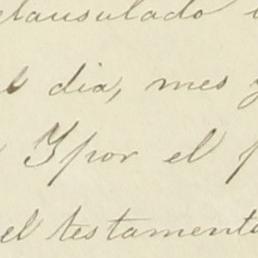 clausulado
el dia, mes y
Y por el
el testamento